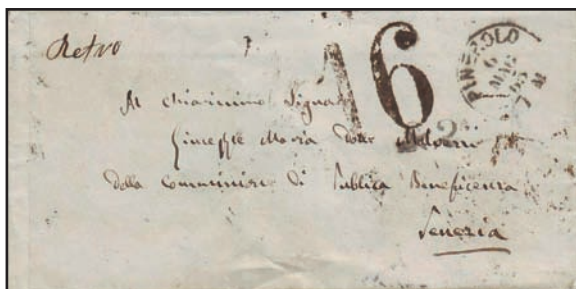 Retro
16
PINEROLO
6
MAG
65
7 M
Al Chiarissimo Signor
Giuseppe Maria Dott.
della Commissione di Publica Beneficenza
Venezia